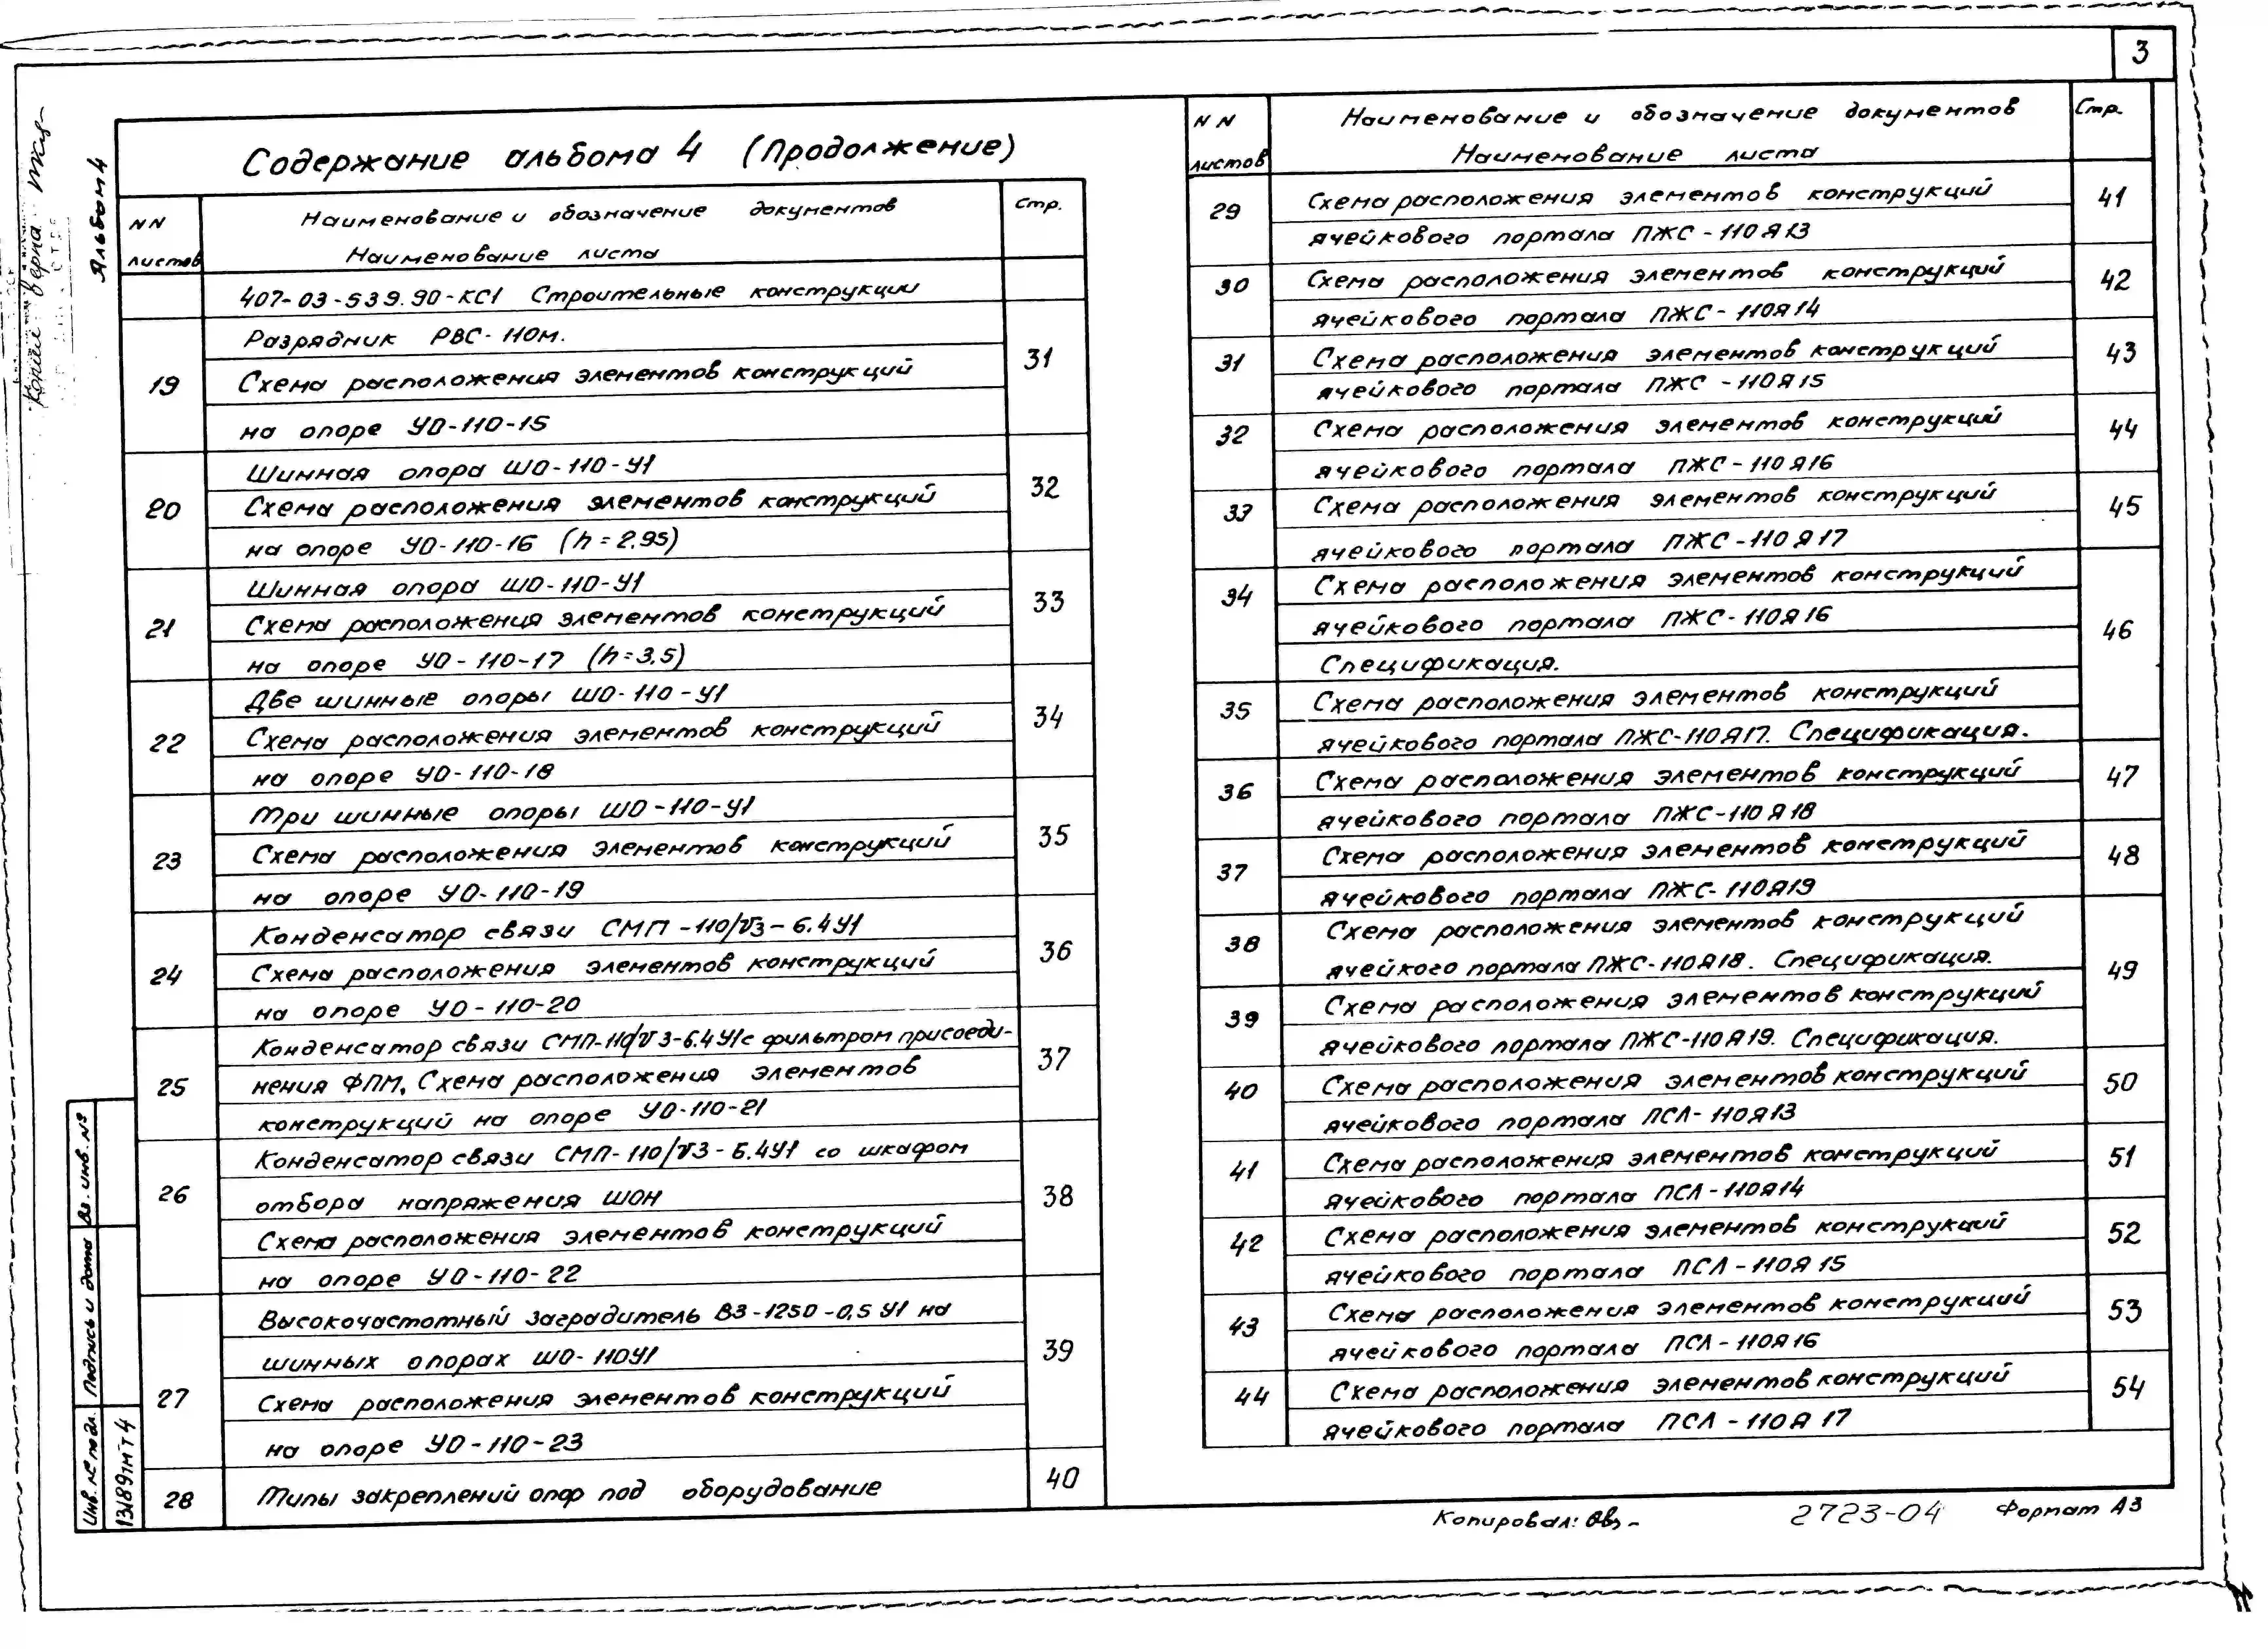 3
Альбом 4
Содержание альбома 4 (Продолжение)
NN листов
Наименование и обозначение документов
Наименование листа
Стр.
407-03-539.90-КС1 Строительные конструкции
19
Разрядник РВС-110м.
Схема расположения элементов конструкций
на опоре УО-110-15
31
20
Шинная опора ШО-110-У1
Схема расположения элементов конструкций
на опоре УО-110-16 (h=2.95)
32
21
Шинная опора ШО-110-У1
Схема расположения элементов конструкций
на опоре УО-110-17 (h=3.5)
33
22
Две шинные опоры ШО-110-У1
Схема расположения элементов конструкций
на опоре УО-110-18
34
23
Три шинные опоры ШО-110-У1
Схема расположения элементов конструкций
на опоре УО-110-19
35
24
Конденсатор связи СМП-110/√3-6.4У1
Схема расположения элементов конструкций
на опоре УО-110-20
36
25
Конденсатор связи СМП-110/√3-6.4У1с фильтром присоеди-
нения ФПМ. Схема расположения элементов
конструкций на опоре УО-110-21
37
26
Конденсатор связи СМП-110/√3-6.4У1 со шкафом
отбора напряжения ШОН
Схема расположения элементов конструкций
на опоре УО-110-22
38
27
Высокочастотный заградитель ВЗ-1250-0,5 У1 на
шинных опорах ШО-110У1
Схема расположения элементов конструкций
на опоре УО-110-23
39
28
Типы закреплений опор под оборудование
40
NN листов
Наименование и обозначение документов
Наименование листа
Стр.
29
Схема расположения элементов конструкций
ячейкового портала ПЖС-110Я13
41
30
Схема расположения элементов конструкций
ячейкового портала ПЖС-110Я14
42
31
Схема расположения элементов конструкций
ячейкового портала ПЖС-110Я15
43
32
Схема расположения элементов конструкций
ячейкового портала ПЖС-110Я16
44
33
Схема расположения элементов конструкций
ячейкового портала ПЖС-110Я17
45
34
Схема расположения элементов конструкций
ячейкового портала ПЖС-110Я16
Спецификация.
46
35
Схема расположения элементов конструкций
ячейкового портала ПЖС-110Я17. Спецификация.
36
Схема расположения элементов конструкций
ячейкового портала ПЖС-110Я18
47
37
Схема расположения элементов конструкций
ячейкового портала ПЖС-110Я19
48
38
Схема расположения элементов конструкций
ячейкого портала ПЖС-110Я18. Спецификация.
49
39
Схема расположения элементов конструкций
ячейкового портала ПЖС-110Я19. Спецификация.
40
Схема расположения элементов конструкций
ячейкового портала ПСЛ-110Я13
50
41
Схема расположения элементов конструкций
ячейкового портала ПСЛ-110Я14
51
42
Схема расположения элементов конструкций
ячейкового портала ПСЛ-110Я15
52
43
Схема расположения элементов конструкций
ячейкового портала ПСЛ-110Я16
53
44
Схема расположения элементов конструкций
ячейкового портала ПСЛ-110Я17
54
Вз. инв. №
Подпись и дата
Инв. № подл.
13189тмт4
Копировал:
2723-04
Формат А3